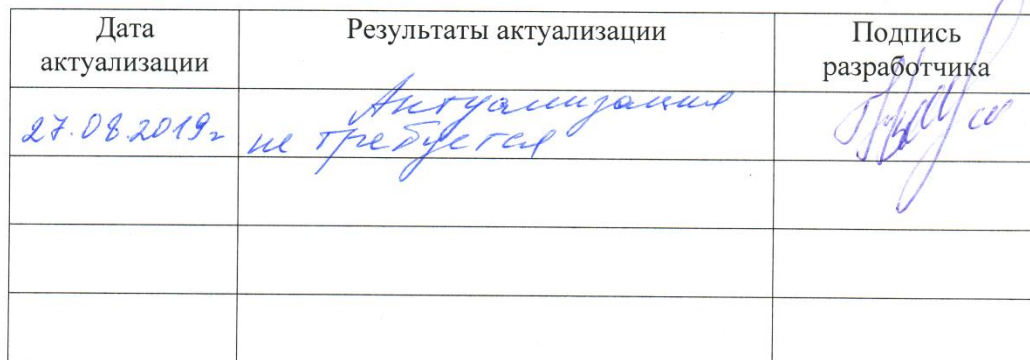 Дата актуализации
Результаты актуализации
Подпись разработчика
27.08.2019г
Актуализация
не требуется